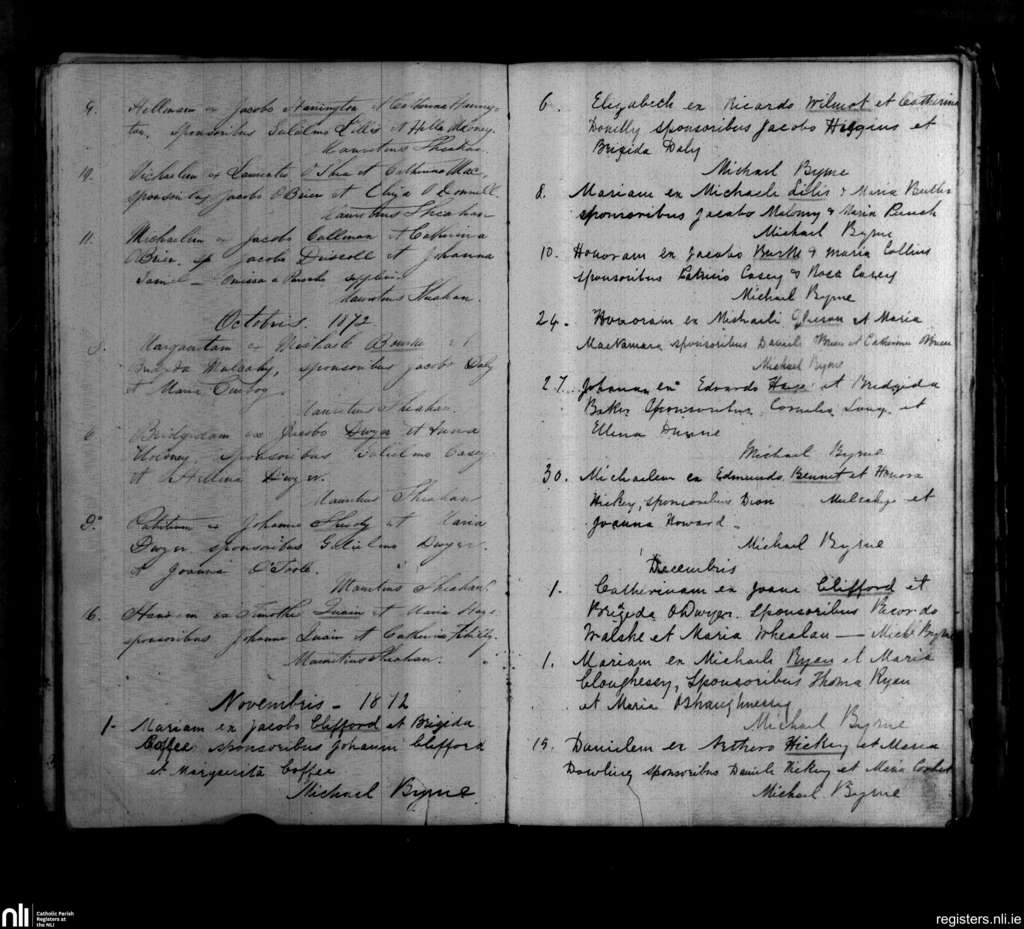 9. Hellenam ex Jacobo Harrington et Catherina Harring-
ton, sponsoribus Gulielmo Lillis et Hella Mooney.
Mauritius Sheahan.
10. Michaelem ex Laurentio O'Shea et Catherina Mac,
sponsoribus Jacobo O'Brien et Eliza O'Donnell.
Mauritius Sheahan
11. Michaelem ex Jacobo Callinan et Catherina
O'Brien, sp Jacobo Driscoll et Johanna
omissa a Parocho
Mauritius Sheahan.
Octobris. 1872
3. Margaritam ex Michaele Bourke et
Bridgida Mulcahy, sponsoribus Jacobo Daly
et Maria
Mauritius Sheahan.
6 Bridgidam ex Jacobo Dwyer et Anna
sponsoribus Gulielmo Casey
et Hellena Dwyer.
Mauritius Sheahan
9. Patritium ex Johanne Sheedy et Maria
Dwyer sponsoribus Gulielmo Dwyer.
et Joanna O'Toole.
Mauritius Sheahan.
16. ex Timotheo Quain et Maria Hays
sponsoribus Johanne Quain et Catherina
Mauritius Sheahan.
Novembris - 1872
1. Mariam ex Jacobo Clifford et Brigida
Coffee sponsoribus Johanni Clifford
et Margarita Coffee
Michael Byrne.
6. Elizabeth ex Ricardo Wilmot et Catherina
Donelly sponsoribus Jacobo Higgins et
Brigida Daly
Michael Byrne
8. Mariam ex Michaele Lilis & Maria Butler
sponsoribus Jacobo Malony & Maria Punch
Michael Byrne
10. Honoram ex Jacobo Burke & Maria Collins
sponsoribus Patricio Casey & Rosa Casey
Michael Byrne
24. Honoram ex Michaeli Gleeson et Maria
MacNamara sponsoribus Daniele O'Brien et Catherina O'Brien
Michael Byrne
27. Johanna ex Edvardo Hays et Bridgida
Baker Sponsoribus Cornelio Long et
Ellena Dunne
Michael Byrne
30. Michaelem ex Edmundo Bennet et Honora
Hickey, sponsoribus Dion Mulcahy et
Joanna Howard.
Michael Byrne
Decembris
1. Catherinam ex Joane Clifford et
Brigida O'Dwyer. Sponsoribus Recordo
Walshe et Maria Whealan — Michl Byrne
1. Mariam ex Michaele Ryan et Maria
Cloughessy, Sponsoribus Thoma Ryan
et Maria O'Shaughnessy
Michael Byrne
15. Danielem ex Arthuro Hickey et Maria
Dowling sponsoribus Daniele Hickey et Maria Corbet
Michael Byrne
nli
Catholic Parish
Registers at
the NLI
registers.nli.ie